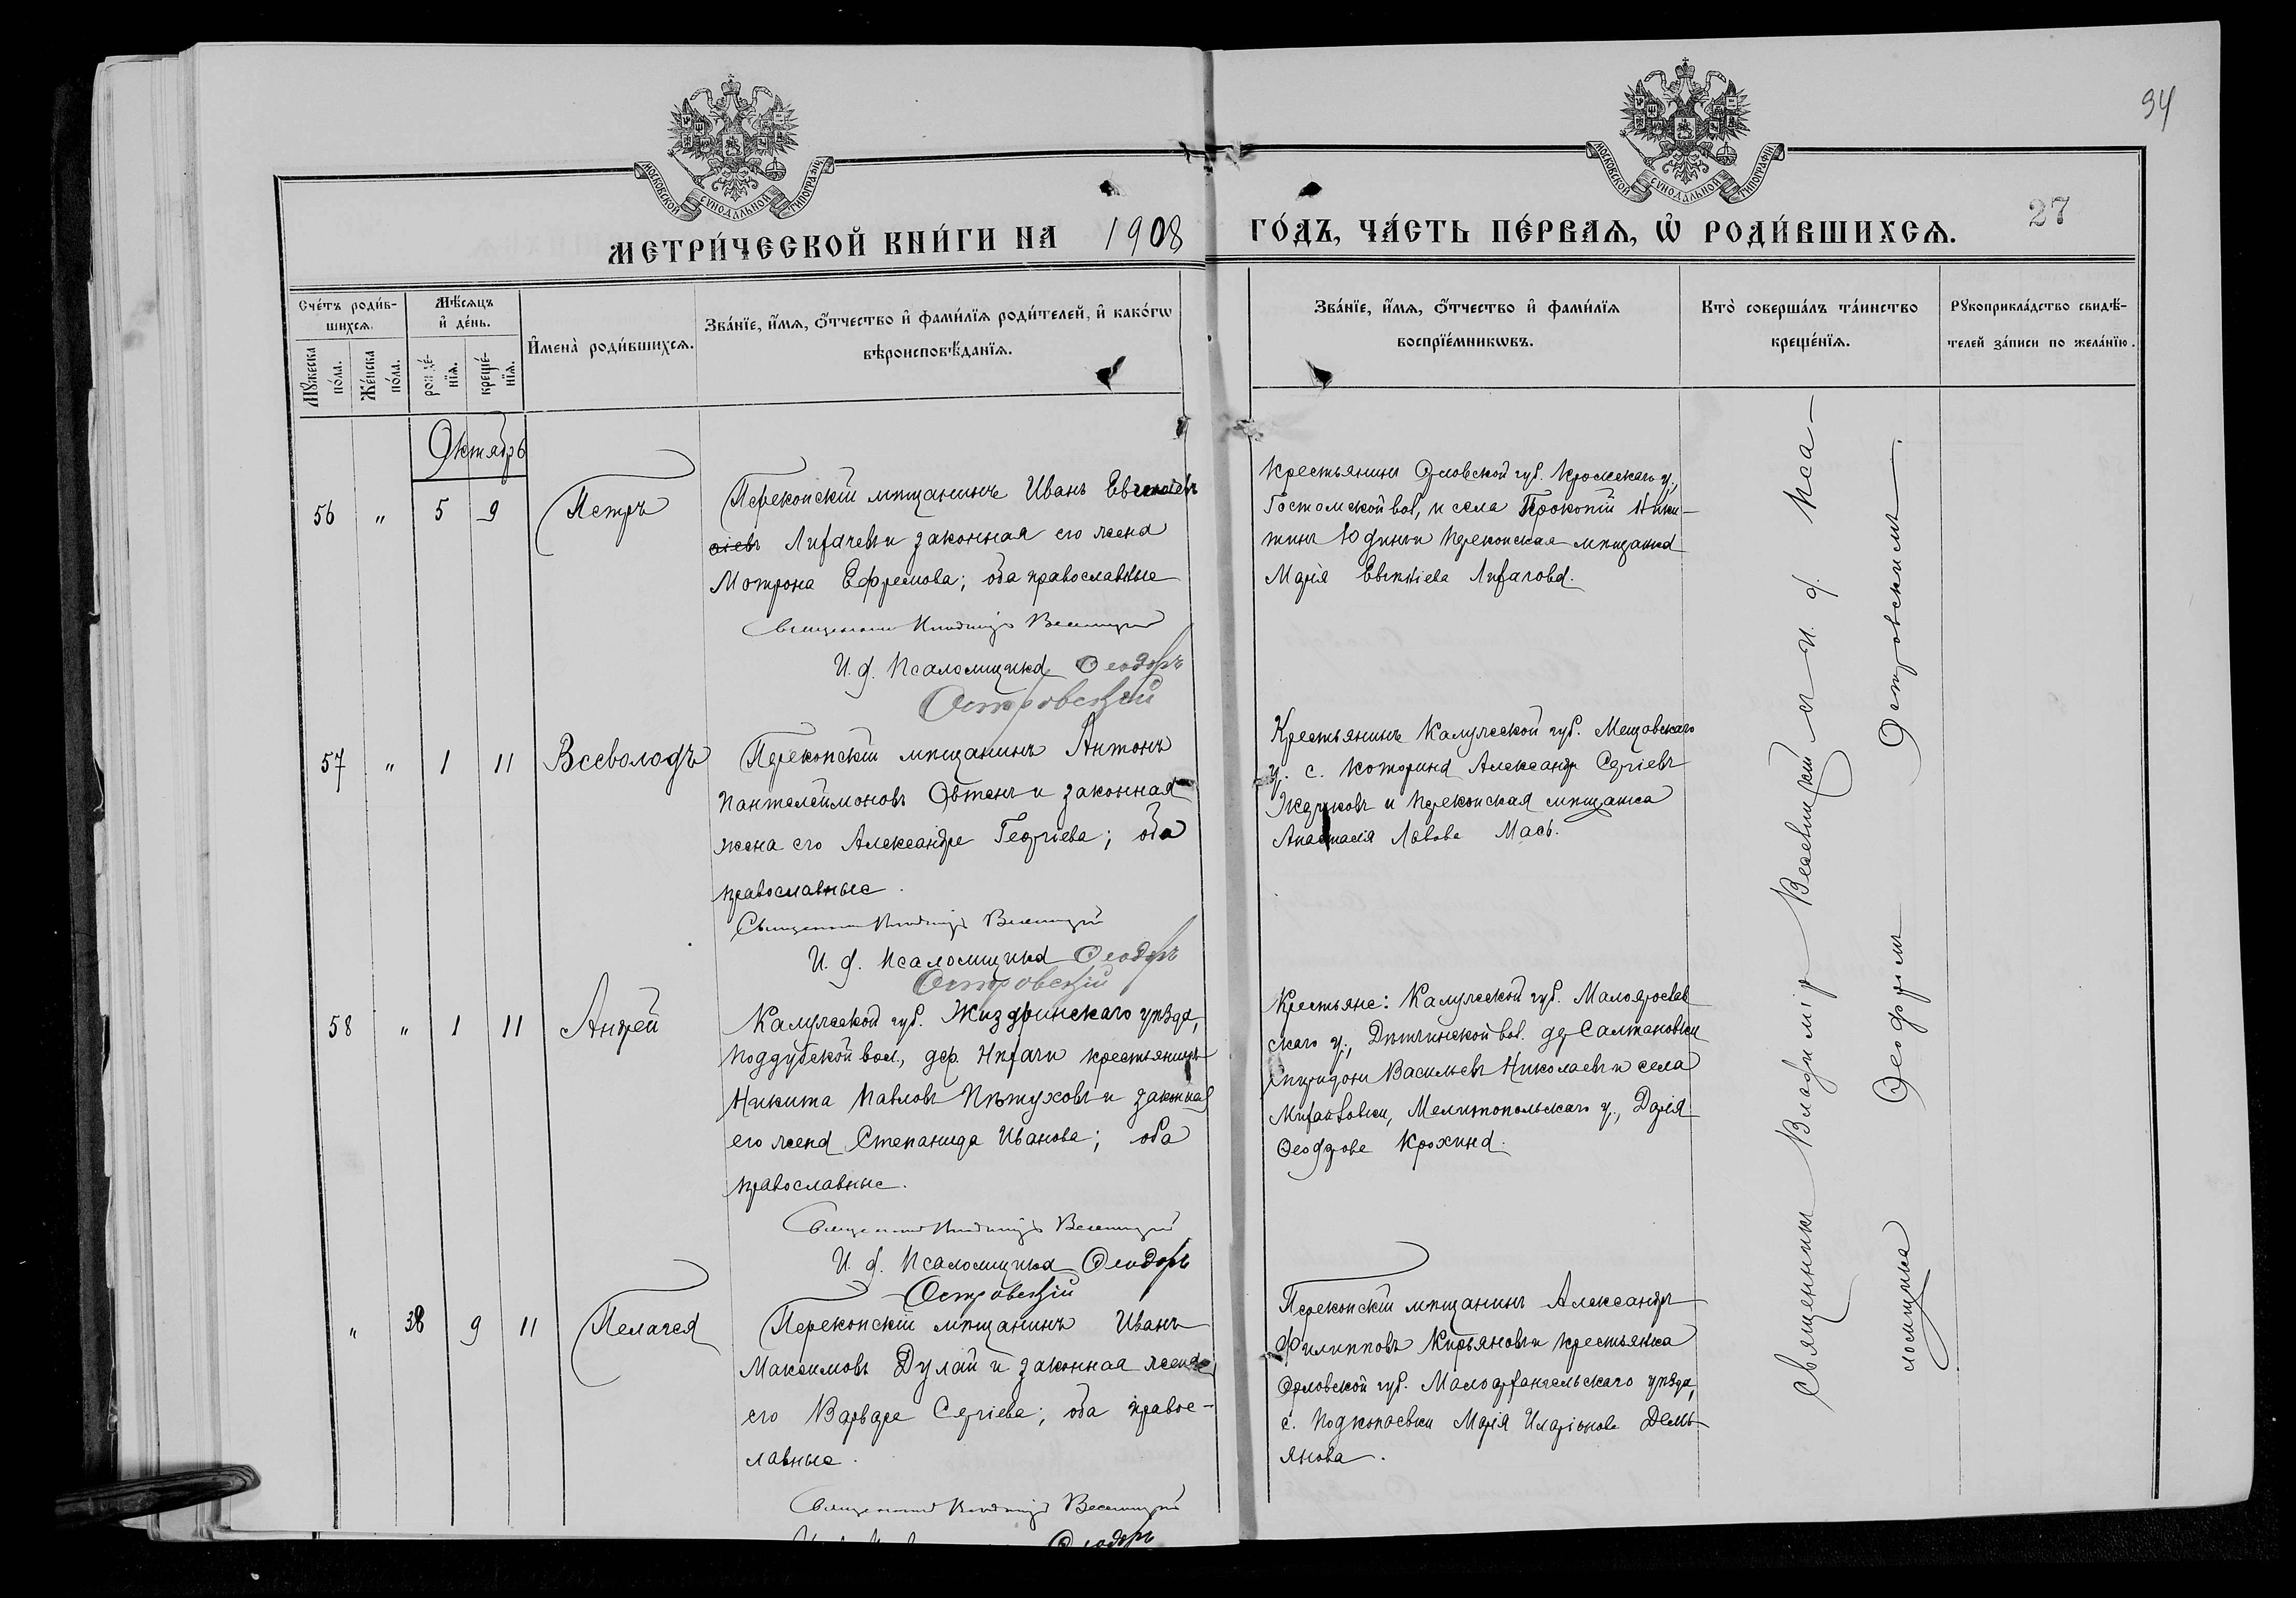 94
МОСКОВСКОЙ СѴНОДАЛЬНОЙ ТИПОГРАФІИ
МОСКОВСКОЙ СѴНОДАЛЬНОЙ ТИПОГРАФІИ
МЕТРИ́ЧЕСКОЙ КНИ́ГИ НА 1908
ГО́ДЪ, ЧА́СТЬ ПЕ́РВАѦ, Ѡ҆ РОДИ́ВШИХСѦ.
27
Сче́тъ роди́в-
шихсѧ.
Мꙋ́жеска
по́ла.
Же́нска
по́ла.
Мѣ́сѧцъ
и҆ де́нь.
рожде́-
нїѧ.
креще́-
нїѧ.
И҆мена̀ роди́вшихсѧ.
Зва́нїе, и҆́мѧ, ѻ҆́тчество и҆ фами́лїѧ роди́телей, и҆ како́гѡ
вѣроисповѣ́данїѧ.
Зва́нїе, и҆́мѧ, ѻ҆́тчество и҆ фами́лїѧ
воспрїе́мникѡвъ.
Кто̀ соверша́лъ та́инство
креще́нїѧ.
Рꙋкоприкла́дство свидѣ́-
телей за́писи по жела́нїю.
Октябрь
56 " 5 9 Петръ
Перекопскій мѣщанинъ Иванъ Евгеніевъ
Лихачевъ и законная его жена
Мотрона Ефремова; оба православные
Священникъ Владиміръ
И. д. Псаломщика Ѳеодоръ
Островскій
Крестьянинъ Орловской губ. Кромскаго у.,
Гостомской вол. и села Прокопій Ники-
тинъ Юдинъ и Перекопская мѣщанка
Марія Евгеніева Лихачова.
57 " 1 11 Всеволодъ
Перекопскій мѣщанинъ Антонъ
Пантелеимоновъ Овтенъ и законная
жена его Александра Георгіева; оба
православные.
Священникъ Владиміръ
И. д. Псаломщика Ѳеодоръ
Островскій
Крестьянинъ Калужской губ. Мещовскаго
у. с. Которина Александръ Сергіевъ
и Перекопская мѣщанка
Анастасія Львова Мась.
58 " 1 11 Андрей
Калужской губ. Жиздринскаго уѣзда,
Поддубской вол., дер. крестьянинъ
Никита Павловъ Пѣтуховъ и законная
его жена Степанида Иванова; оба
православные.
Священникъ Владиміръ
И. д. Псаломщика Ѳеодоръ
Островскій
Крестьяне: Калужской губ. Малояросла
скаго у., Дѣтчинской вол. дер. Салтановки
Спиридонъ Васильевъ Николаевъ и села
Михайловки, Мелитопольскаго у., Дарія
Ѳеодорова Крохина.
" 38 9 11 Пелагея
Перекопскій мѣщанинъ Иванъ
Максимовъ Дулай и законная жена
его Варвара Сергіева; оба право-
славные.
Священникъ Владиміръ
Ѳеодоръ
Перекопскій мѣщанинъ Александръ
Филипповъ Кирьяновъ и крестьянка
Орловской губ. Малоархангельскаго уѣзда,
с. Подкопаевки Марія Иларіонова Демь-
янова.
Священникъ Владиміръ и и. д. Пса-
ломщика Ѳеодоръ Островскій